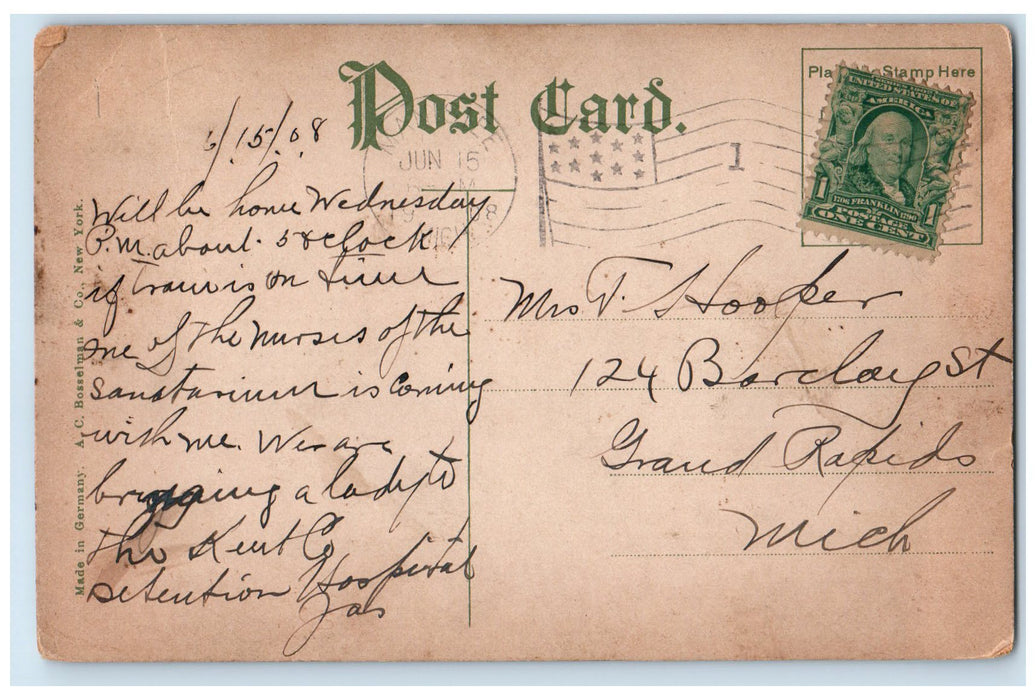 Post Card.
Stamp Here
UNITED STATES OF
AMERICA
1706 FRANKLIN 1790
POSTAGE
1 1
ONE CENT
JUN 15
1
6/15/08
Will be home Wednesday
P.M. about 5 oclock
if train is on time
one of the nurses of the
sanatarium is coming
with me. We are
bringing a lady to
the Kent Co
detention Hospital
Jas
Mrs T. S Hooper
124 Barclay St
Grand Rapids
Mich
Made in Germany. A. C. Bosselman & Co., New York.